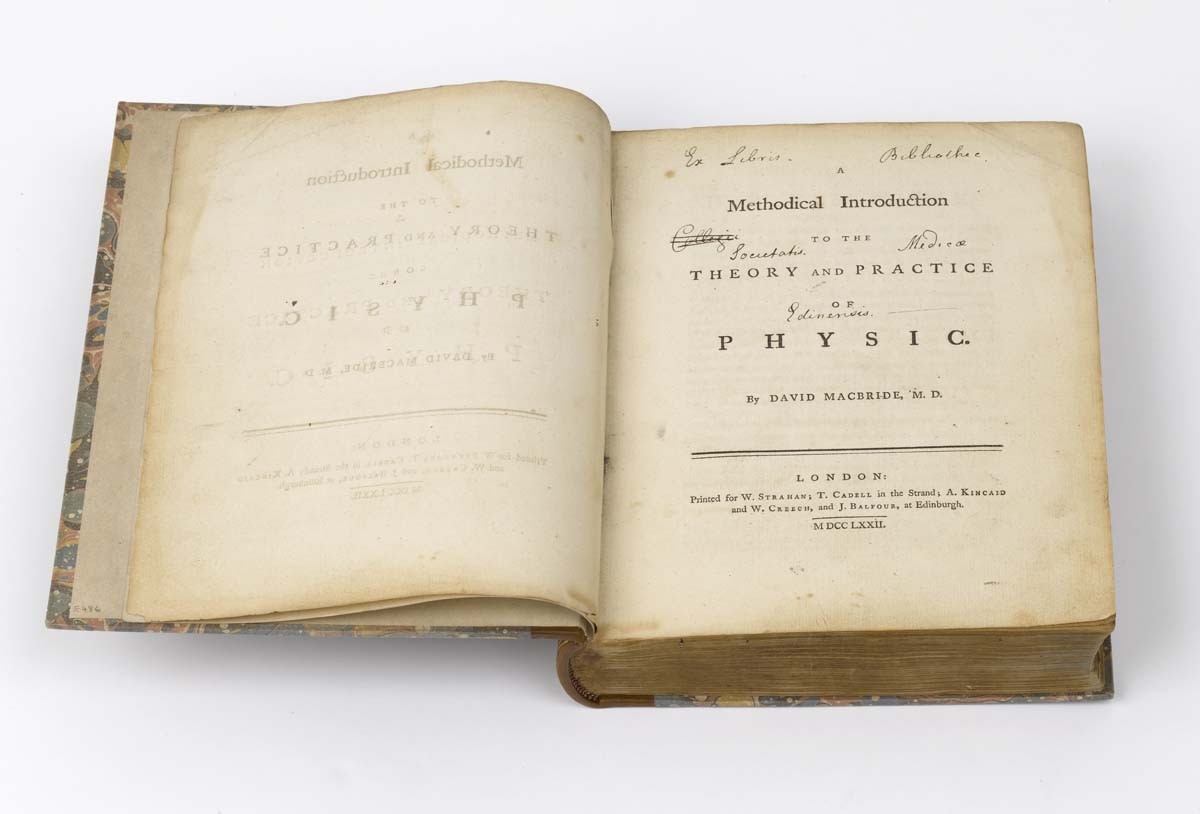 Ex Libris. Bibliothec.
A
Methodical Introduction
Collegii
TO THE
Societatis. Medicæ
THEORY AND PRACTICE
OF
Edinensis.
PHYSIC.
By DAVID MACBRIDE, M. D.
LONDON:
Printed for W. STRAHAN; T. CADELL in the Strand; A. KINCAID
and W. CREECH, and J. BALFOUR, at Edinburgh.
M DCC LXXII.